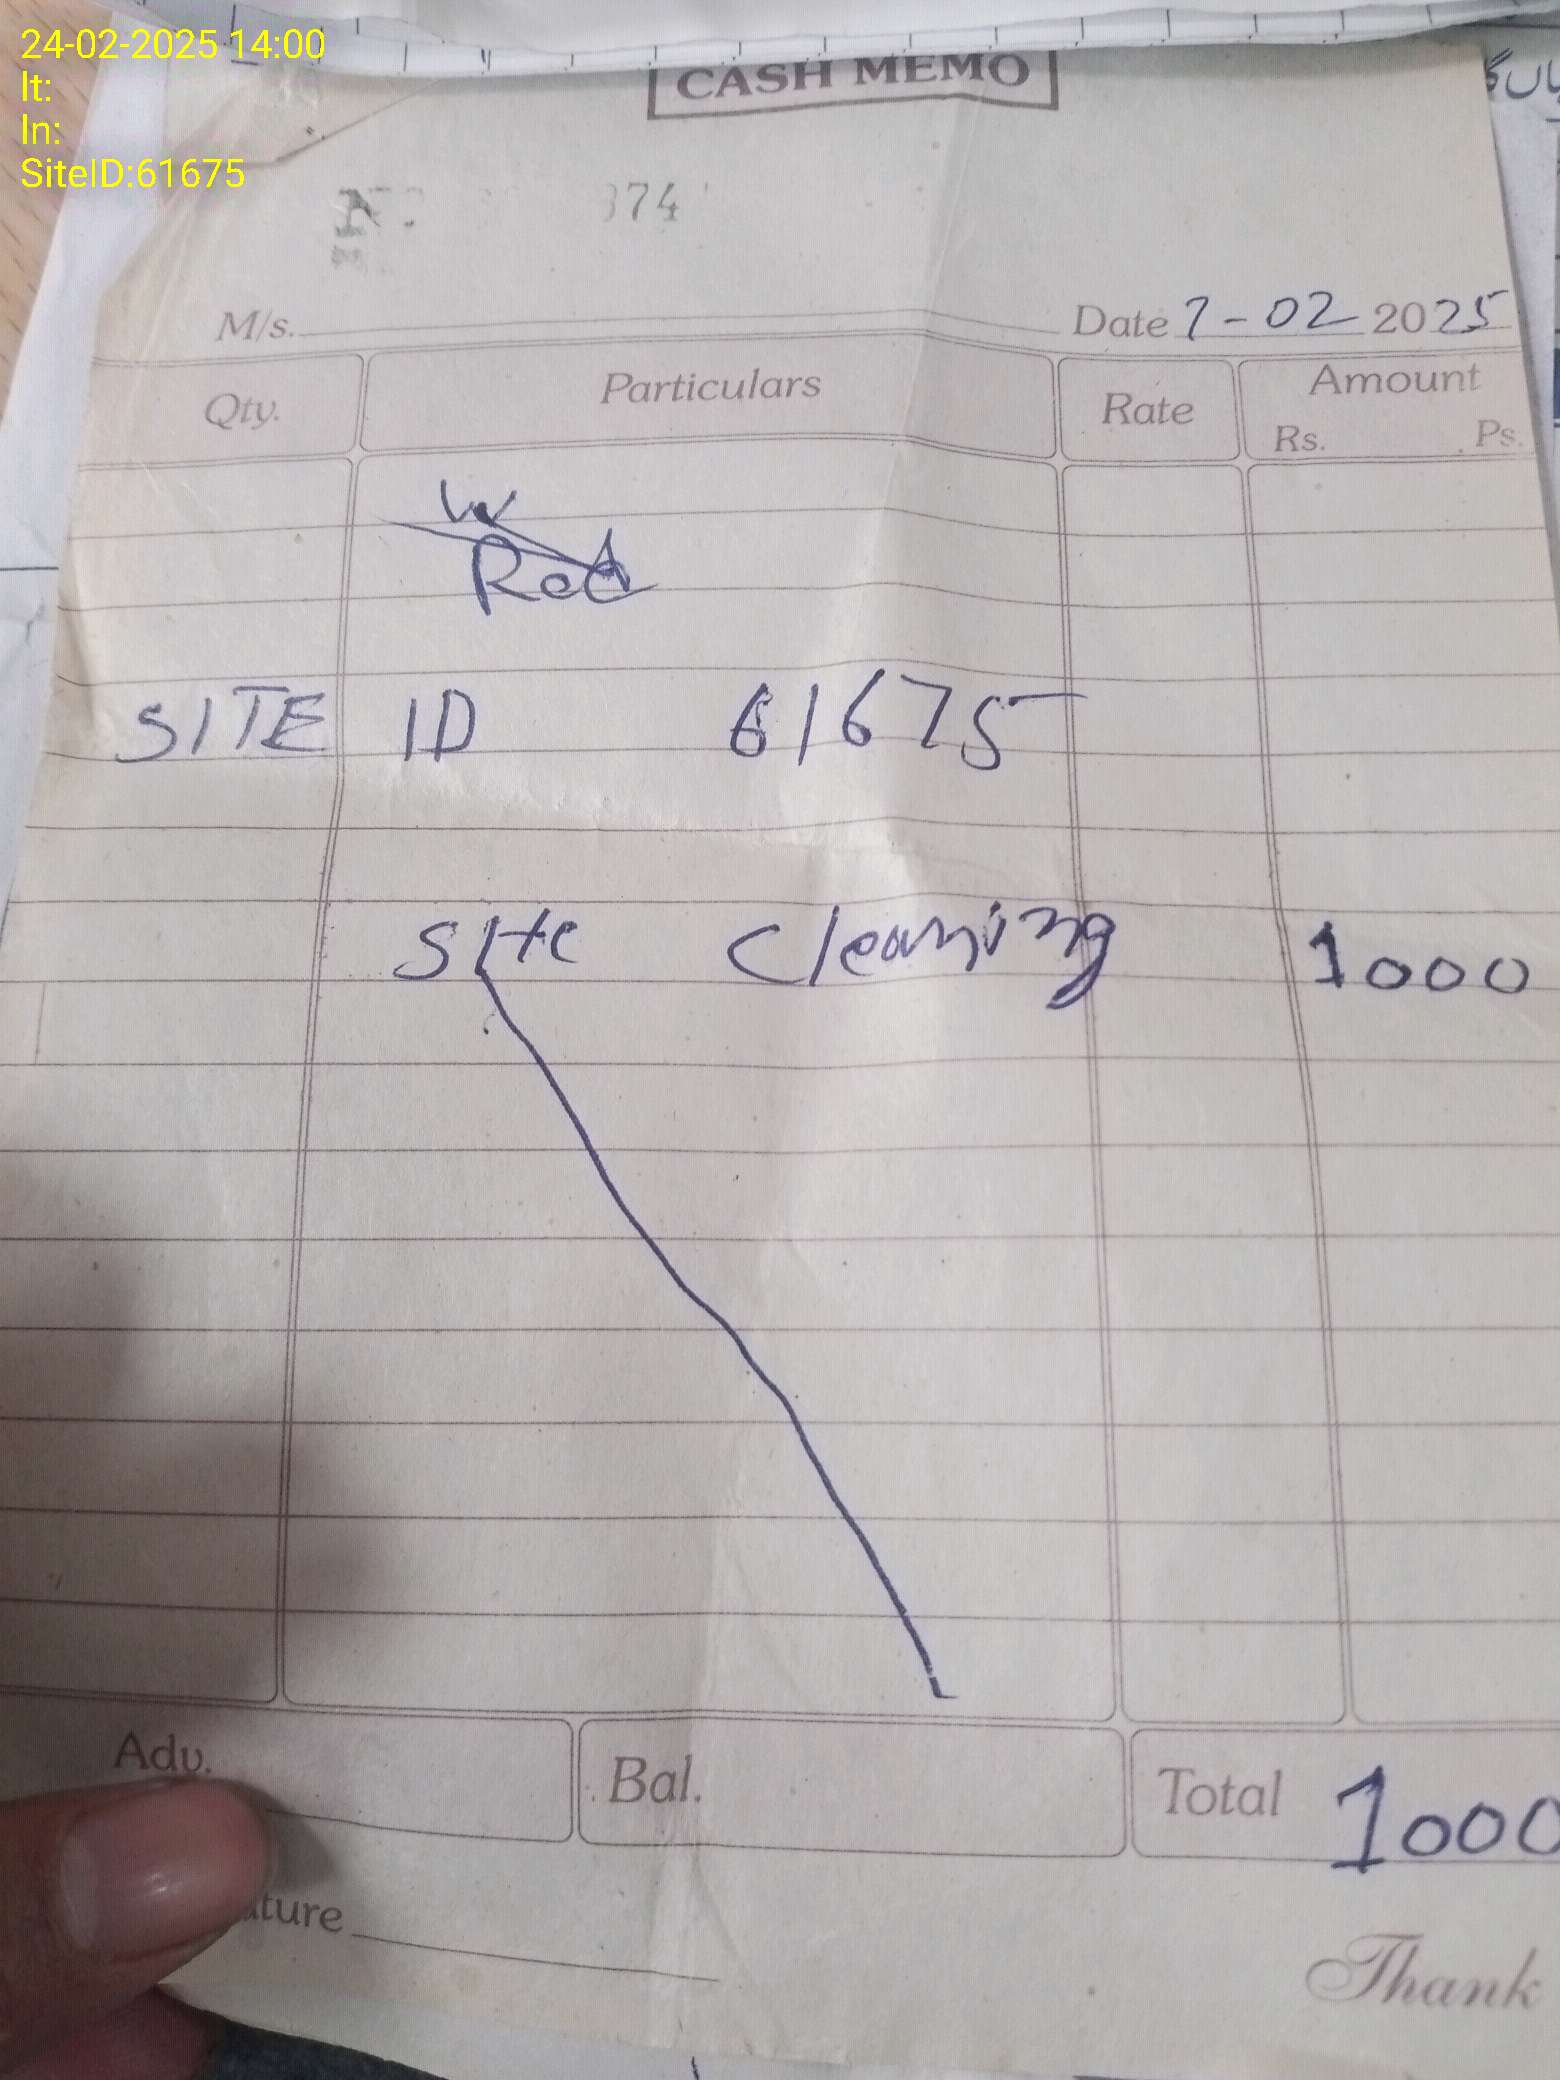 24-02-2025 14:00
lt:
ln:
SiteID:61675
CASH MEMO
374
M/s. Date 7-02 2025
Qty. Particulars Rate Amount
Rs. Ps.
SITE ID 61675
Site Cleaning 1000
Adv. Bal. Total 1000
ature
Thank